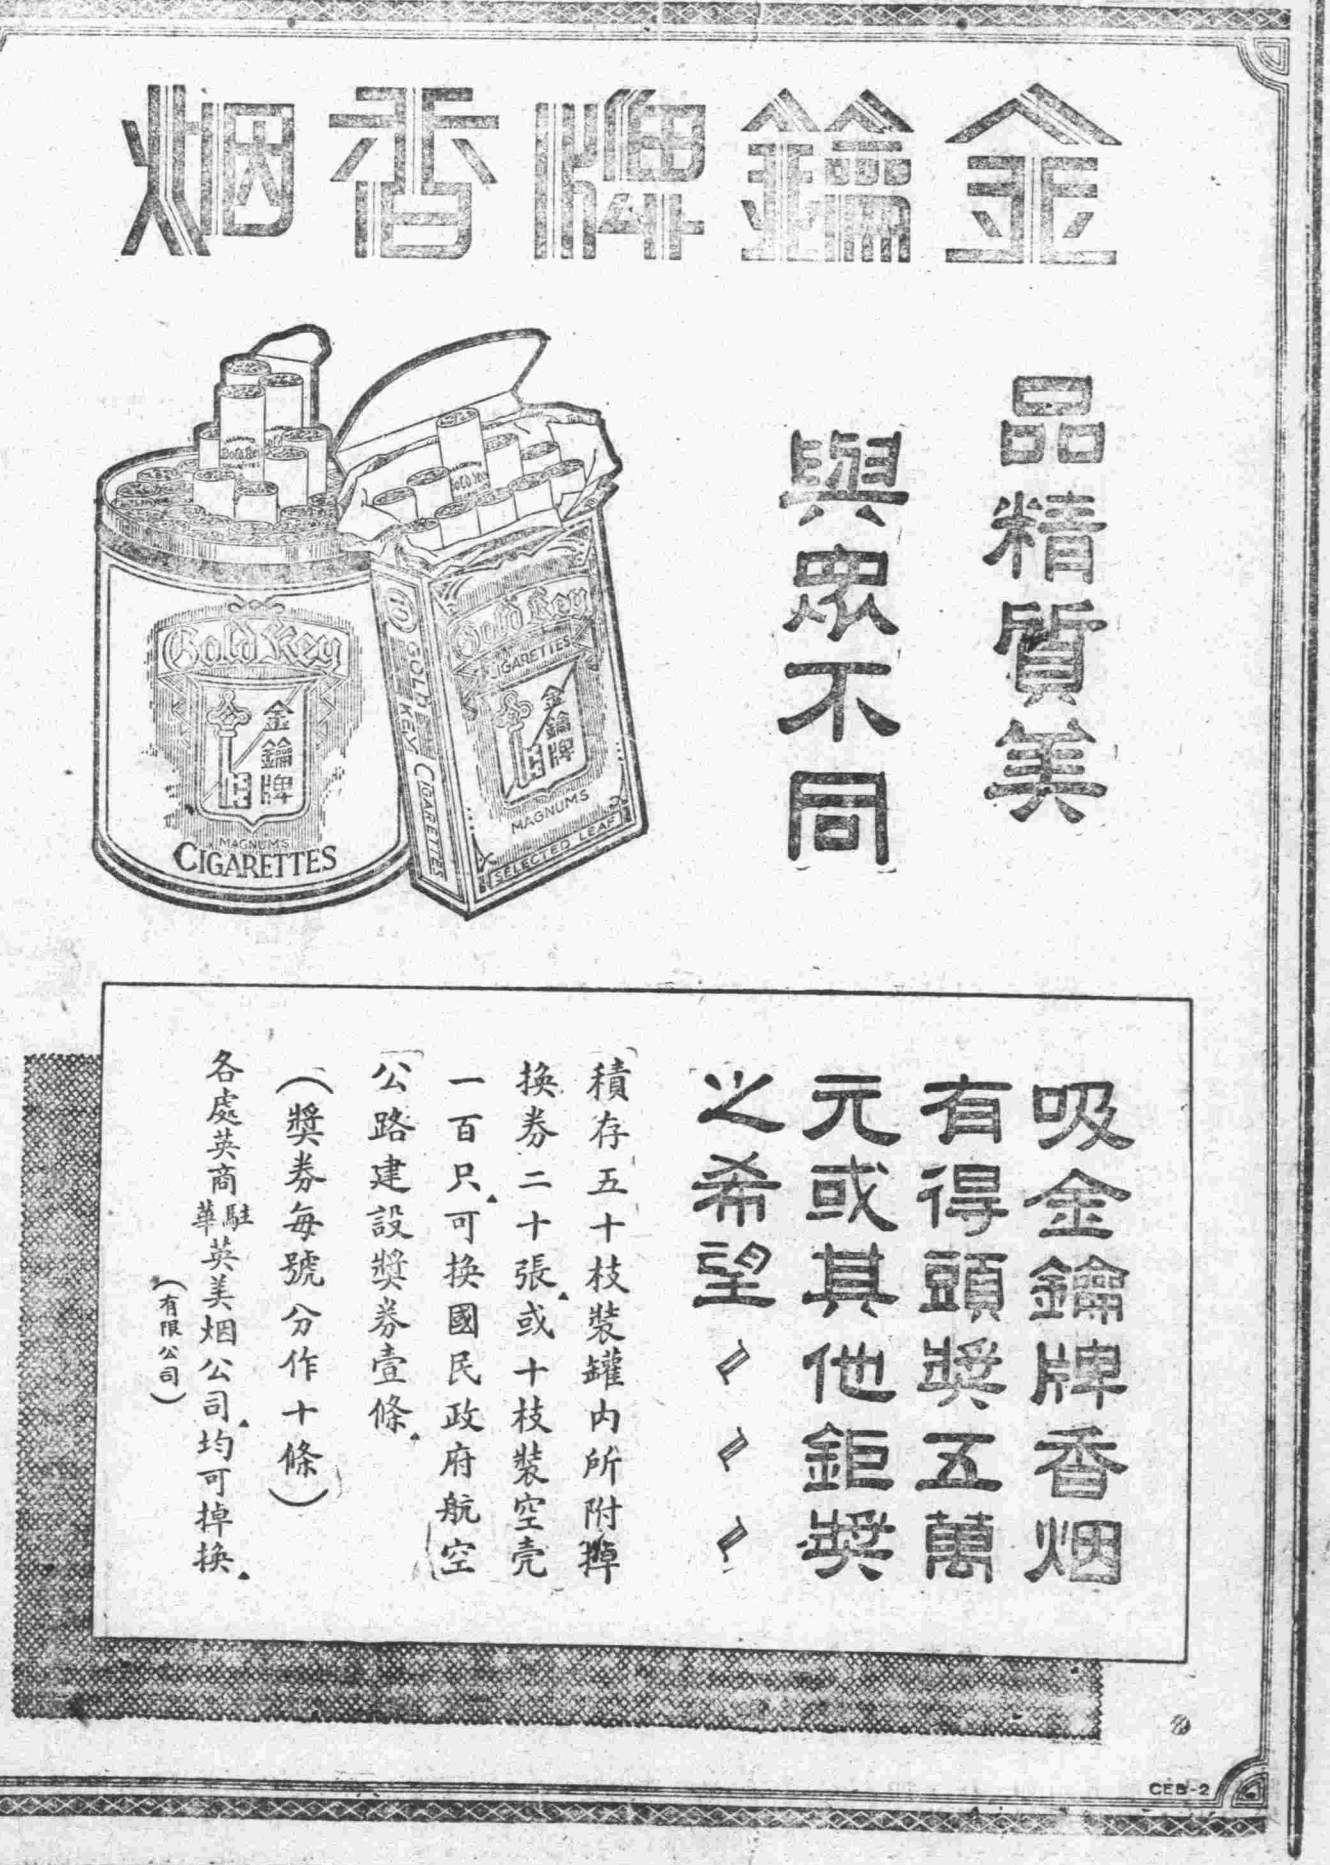 金鑰牌香烟
品精質美
與眾不同
Gold Key
金鑰牌
MAGNUMS
CIGARETTES
Gold Key
CIGARETTES
金鑰牌
MAGNUMS
SELECTED LEAF
10 GOLD KEY CIGARETTES
吸金鑰牌香烟
有得頭獎五萬
元或其他鉅獎
之希望
積存五十枝裝罐內所附掉
換券二十張或十枝裝空壳
一百只可換國民政府航空
公路建設獎券壹條
(獎券每號分作十條)
各處英商駐華英美烟公司均可掉換
(有限公司)
CEB-2